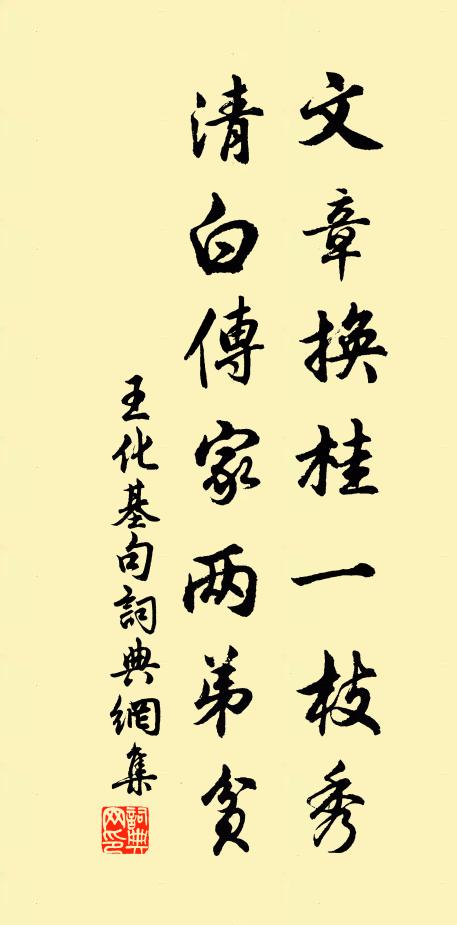 文章換桂一枝秀
清白傳家两弟貧
王化基句詞典網集
詞典网印